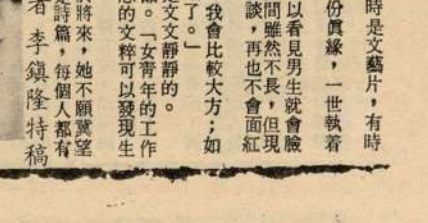 時是文藝片，有時
份眞緣，一世執着
以看見男生就會臉
間雖然不長，但現
談，再也不會面紅
我會比較大方；如
了。」
是文文靜靜的。
。「女靑年的工作
的文粹可以發現生
將來，她不願冀望
是詩篇，每個人都有
者李鎭隆特稿